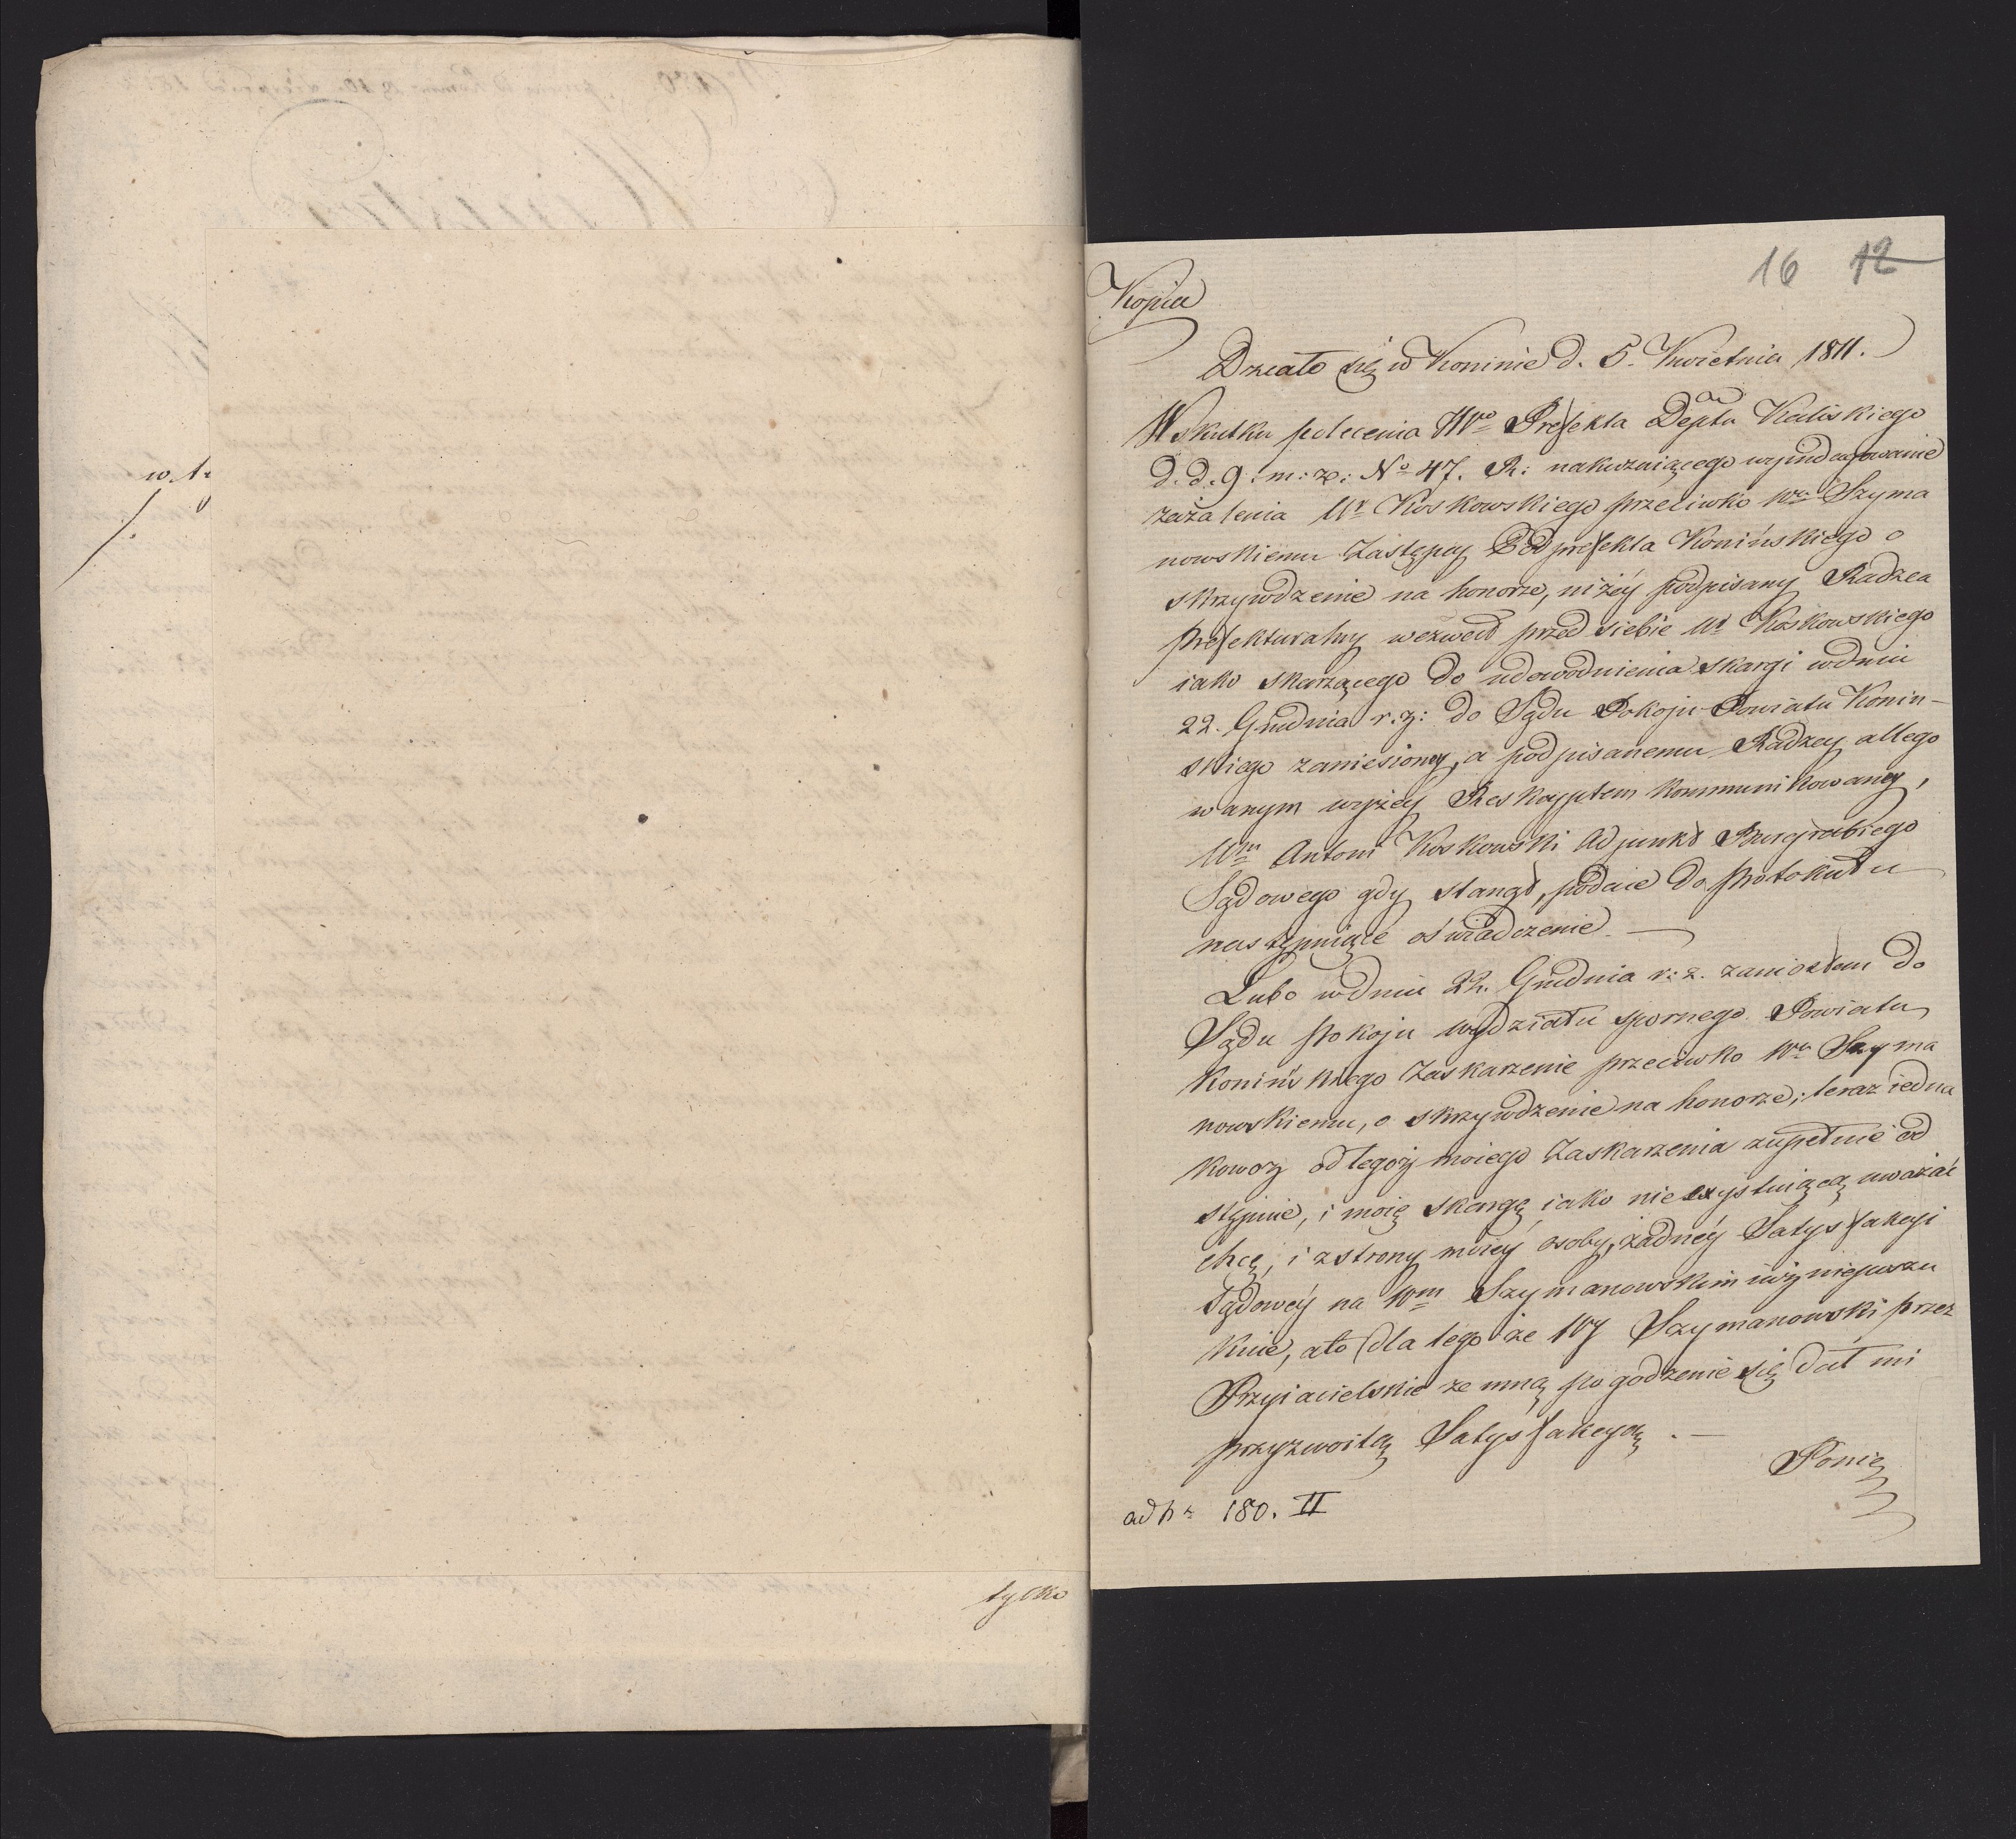 w. A:
tylko
16 12
Kopia
Działo się w Koninie d. 5. Kwietnia 1811.
W skutku polecenia JWgo Prefekta Deptu Kaliskiego
d. d. 9: m: z: No 47. R: nakazuiącego wyindagowanie
zażalenia Ur Koskowskiego przeciwko Wu Szyma
nowskiemu Zastępcy Podprefekta Konińskiego o
skrzywdzenie na honorze, niżéy podpisany Radzca
Prefekturalny wezwał przed siebie Ur Koskowskiego
iako skarzącego do udowodnienia skargi w dniu
22. Grudnia r. z: do Sądu Pokoju Powiatu Konin-
skiego zaniesioney, a podpisanemu Radzcy allego
wanym wyżéy Reskryptem kommunikowaney,
Wm Antoni Koskowski Adjunkt Burgrabiego
Sądowego gdy stanął, podaie do Protokułu
następuiące oświadczenie. —
Lubo w dniu 22. Grudnia r: z. zaniosłem do
Sądu Pokoju wydziału spornego Powiatu
Konińskiego Zaskarzenie przeciwko Wu Szyma
nowskiemu, o skrzywdzenie na honorze; teraz iedna
kowoz od tegoż moiego Zaskarzenia zupełnie od
stępuie, i moię skargę iako nie exystuiącą uważać
chcę, i z strony moiéy osoby, żadnéy Satysfakcyi
Sądowéy na Wm Szymanowskim iuż nieposzu
kuie, a to dla tego że Wy Szymanowski przez
Przyiacielskie ze mną pogodzenie się dał mi
przyzwoitą Satysfakcyą. —
Ponie
ad N: 180. II